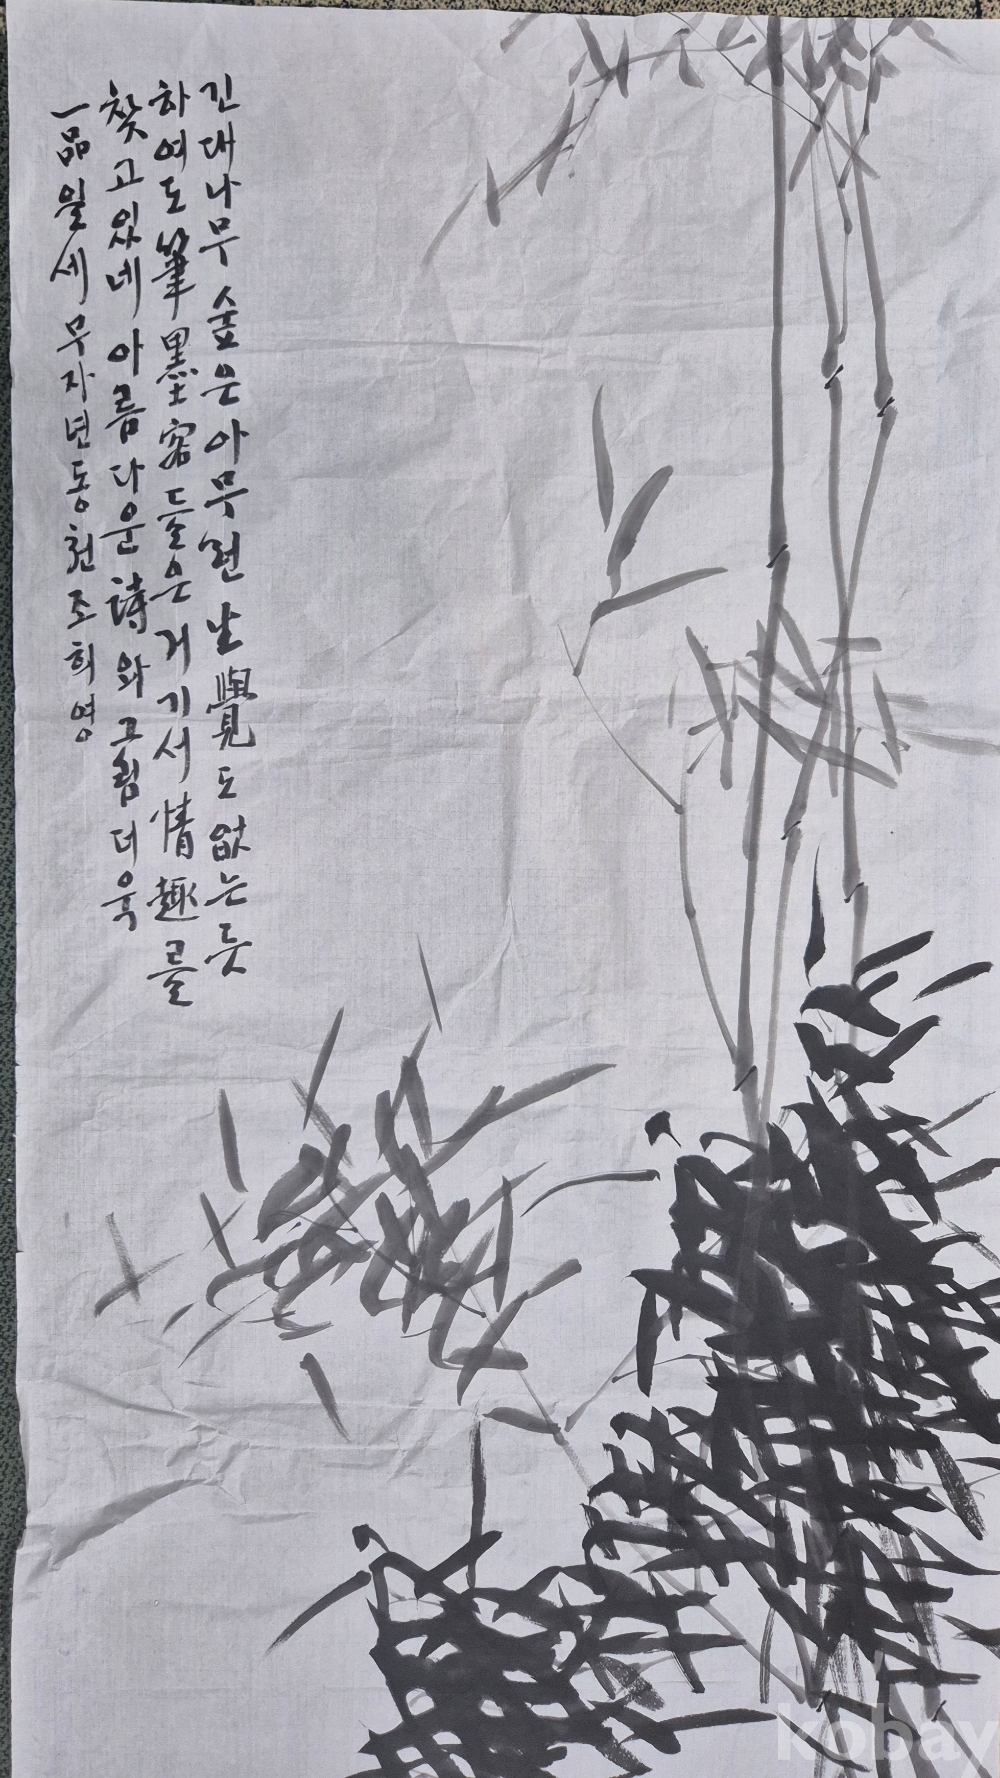 긴대나무 숲은 아무런 生覺도 없는 듯
하여도 筆墨客들은 거기서 情趣를
찾고 있네 아름다운 詩와 그림 더욱
一品일세 무자년 동천 조희영
kobay